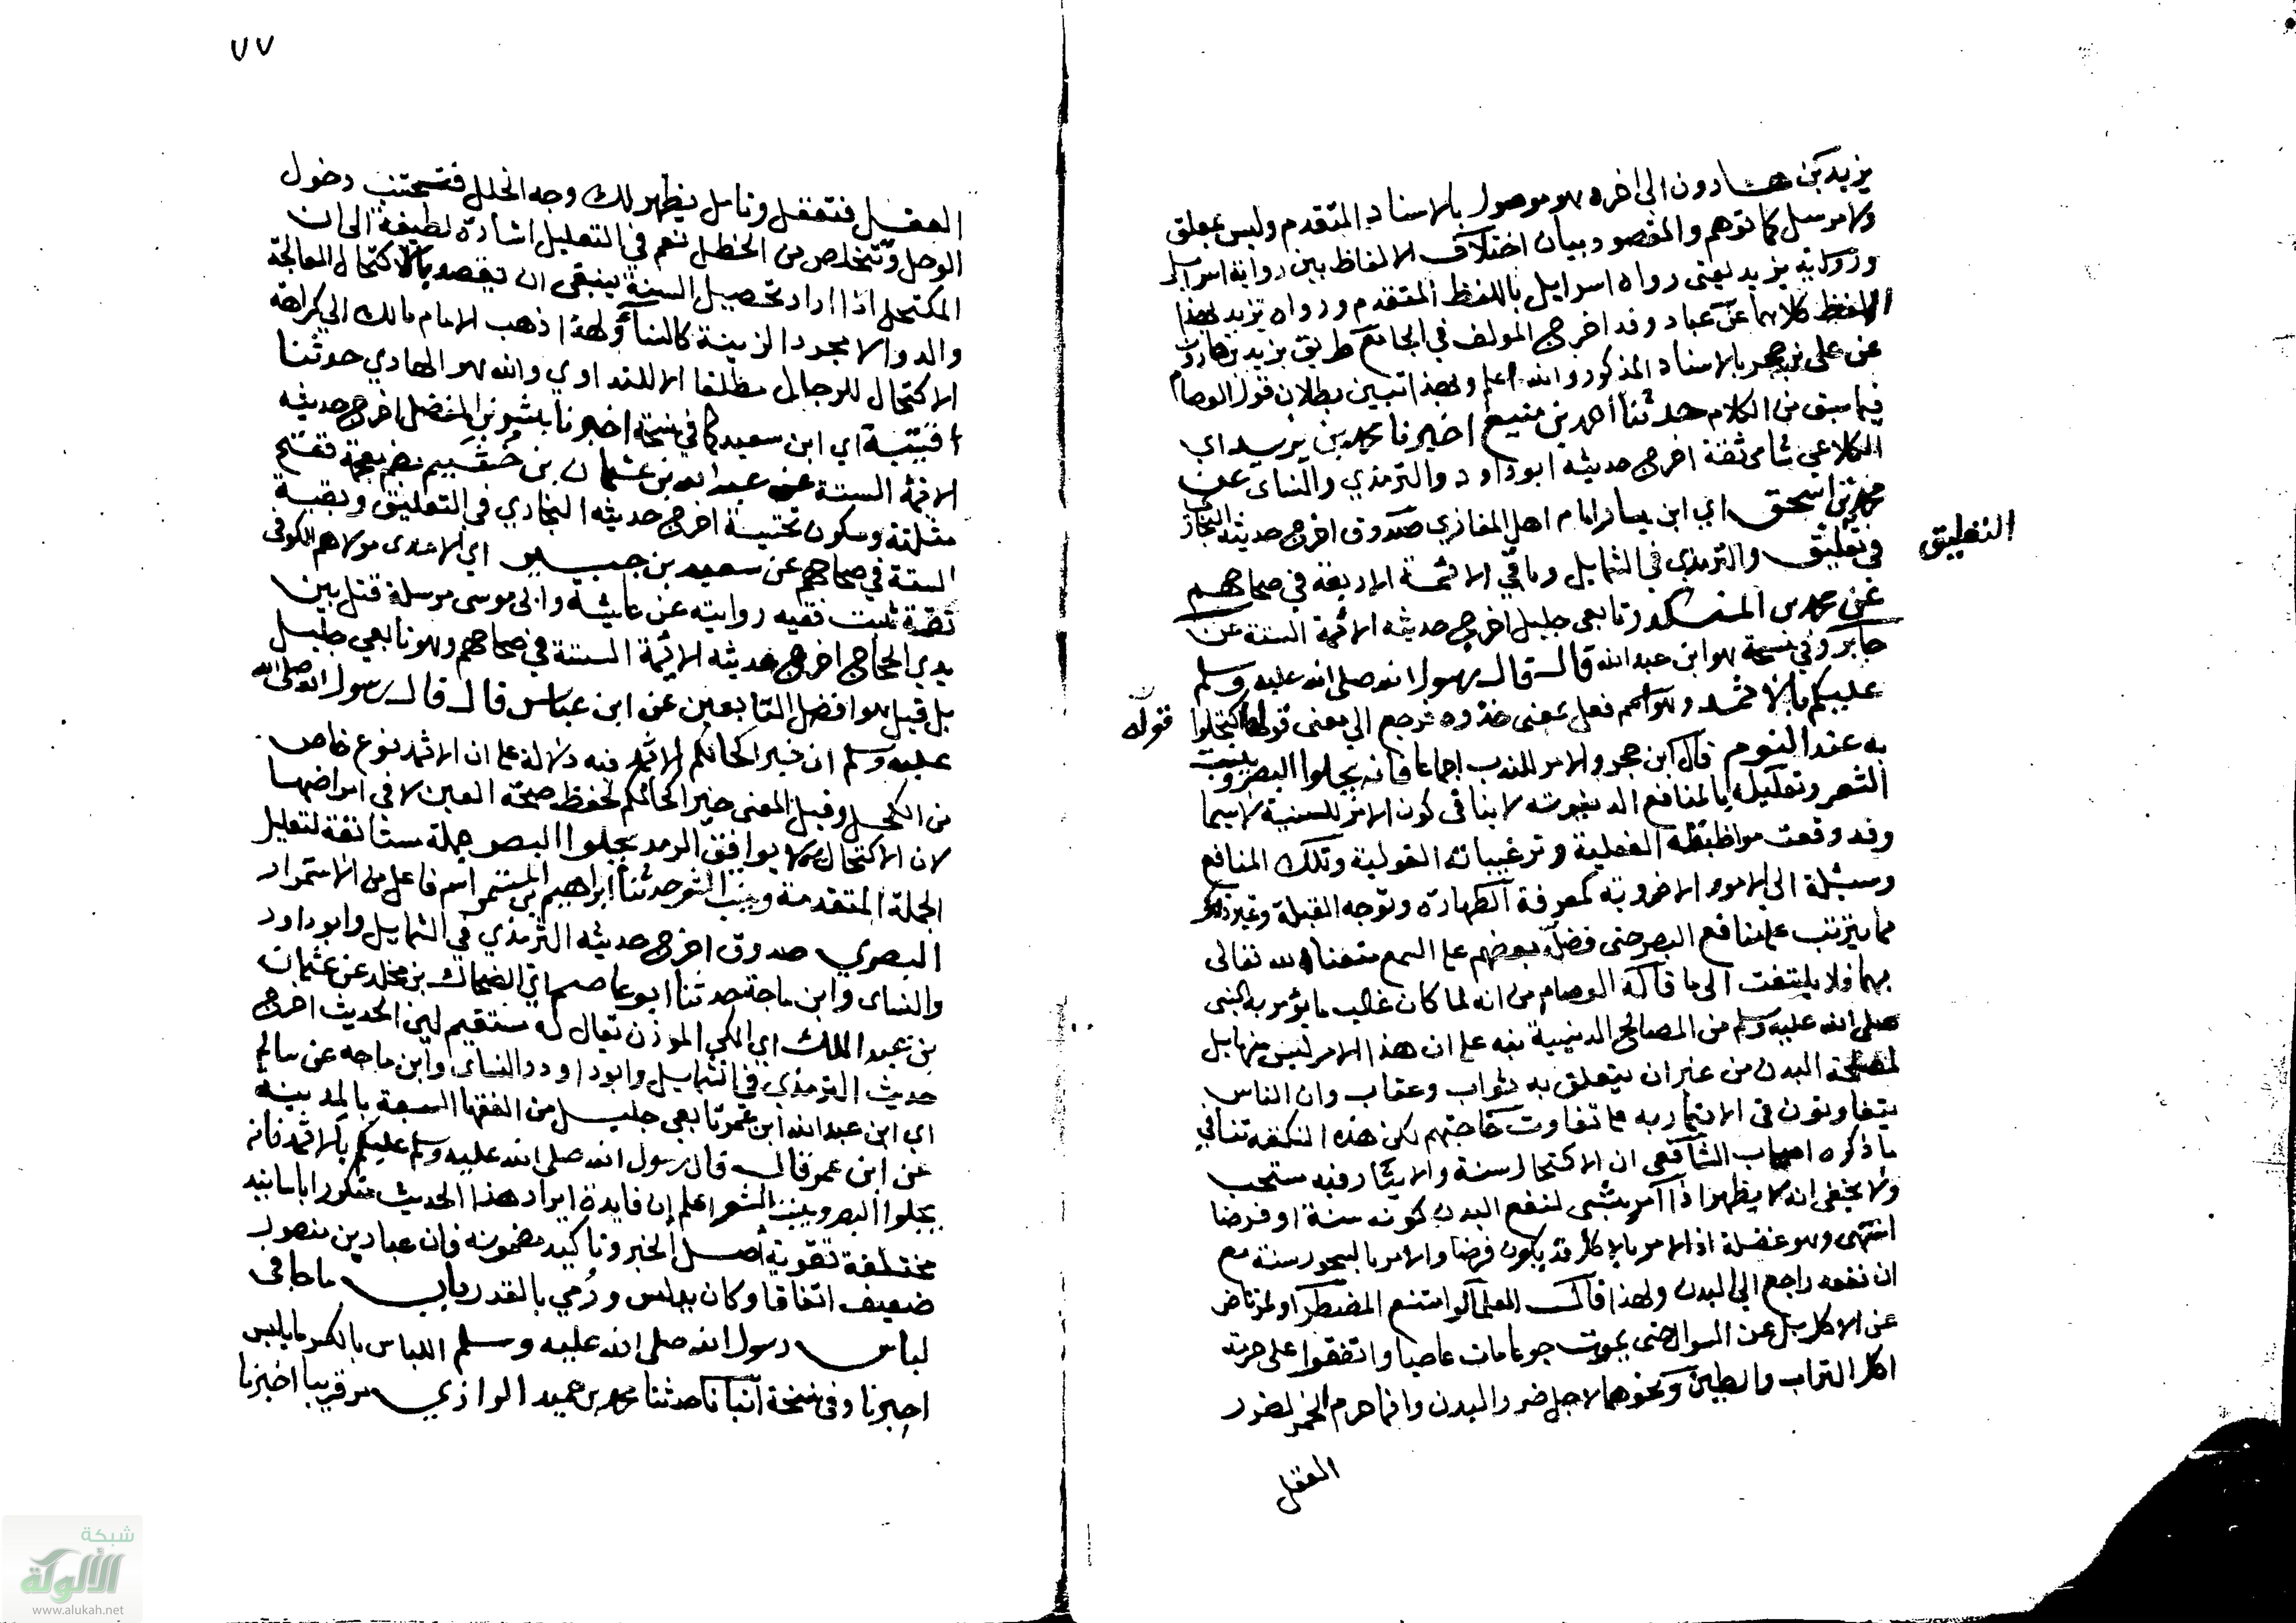 يزيد بن هارون الى اخره هو موصول بالاسناد المتقدم وليس بمعلق
ولا مرسل كما توهم والمقصود بيان اختلاف الالفاظ بين رواية اسرايل
ورواية يزيد يعنى رواه اسرايل باللفظ المتقدم ورواه يزيد بهذا
اللفظ كلاهما عن عباد وقد اخرج المولف في الجامع طريق يزيد بن هارون
عن على بن حجر بالاسناد المذكور والله اعلم وبهذا تبين بطلان قول العصام
فيما سبق من الكلام حدثنا احمد بن منيع اخبرنا محمد بن يزيد اي
الكلاعي شامى ثقة اخرج حديثه ابو داود والترمذي والنساى عن
محمد بن اسحق اي ابن يسار امام اهل المغازى صدوق اخرج حديثه البخارى
في تعليق والترمذي في الشمايل وباقي الائمة الاربعة في صحاحهم
التعليق
عن محمد بن المنكدر تابعى جليل اخرج حديثه الائمة الستة عن
جابر وفي نسخة هو ابن عبد الله قال قال رسول الله صلى الله عليه وسلم
عليكم بالاثمد وهو اسم فعل بمعنى خذوه فرجع الي معنى قوله اكتحلوا
قوله
به عند النوم قال ابن حجر والامر للندب اجماعا فانه يجلوا البصر وينبت
الشعر وتعليله بالمنافع الدنيوية لا ينافى كون الامر للسنية لا سيما
وقد وقعت مواظبته الفعلية وترغيباته القولية وتلك المنافع
وسيلة الى الامور الاخروية كمعرفة الطهارة وتوجه القبلة وغير ذلك
مما يترتب على منافع البصر حتى فضل بعضهم على السمع متعنا الله تعالى
بهما فلا يلتفت الى ما قاله العصام من انه لما كان غالب ما يؤمر به النبى
صلى الله عليه وسلم من المصالح الدينية نبه على ان هذا الامر ليس منها بل
لمصلحة البدن من غير ان يتعلق به ثواب وعقاب وان الناس
يتفاوتون في الايتمار به على تفاوت حاجتهم لكن هذه النكتة تنافي
ما ذكره اصحاب الشافعى ان الاكتحال سنة والايتار فيه مستحب
ولا يخفى انه لا يظهر اذا امر بشى لنفع البدن كونه سنة او فرضا
انتهى وهو غفلة اذ الامر بالاكل قد يكون فرضا والامر بالسحور سنة مع
ان نفعه راجع الي البدن ولهذا قالـ العلما لو امتنع المضطر او المرتاض
عن الاكل بل عن السوال حتى يموت جوعا مات عاصيا واتفقوا على حرمة
اكل التراب والطين ونحوهما لاجل ضرر البدن وانما حرم الخمر لضرر
العقل
٧٧
العقل فتعقل وتامل يظهر لك وجه الخلل فتجتنب دخول
الوحل وتتخلص من الخطل نعم في التعليل اشارة لطيفة الى ان
المكتحل اذا اراد تحصيل السنة ينبغى ان يقصد بالاكتحال المعالجة
والدوا لا مجرد الزينة كالنسآ ولهذا ذهب الامام مالك الي كراهة
الاكتحال للرجال مطلقا الا للتداوي والله هو الهادي حدثنا
قتيبة اي ابن سعيد كما في نسخة اخبرنا بشر بن المفضل اخرج حديثه
الائمة الستة عن عبد الله بن عثمان بن خُثَيم بضم معجمة ففتح
مثلثة وسكون تحتية اخرج حديثه البخاري في التعليق وبقية
الستة في صحاحهم عن سعيد بن جبير اي الاسدى مولاهم الكوفى
ثقة ثبت فقيه روايته عن عايشة وابى موسى مرسلة قتل بين
يدي الحجاج اخرج حديثه الائمة الستة في صحاحهم وهو تابعي جليل
بل قيل هو افضل التابعين عن ابن عباس قال قال رسول الله صلى الله
عليه وسلم ان خير اكحالكم الاثمد فيه دلالة على ان الاثمد نوع خاص
من الكحل وقيل المعنى خير اكحالكم لحفظ صحة العين لا في امراضها
لان الاكتحال به لا يوافق الرمد يجلوا البصر جملة مستانفة لتعليل
الجملة المتقدمة وينبت الشعر حدثنا ابراهيم بن المستمر اسم فاعل من الاستمرار
البصري صدوق اخرج حديثه الترمذي في الشمايل وابو داود
والنساى وابن ماجة حدثنا ابو عاصم اي الضحاك بن مخلد عن عثمان
بن عبد الملك اي المكي الموذن يقال له مستقيم لين الحديث اخرج
حديث الترمذي في الشمايل وابو داود والنساى وابن ماجه عن سالم
اي ابن عبد الله ابن عمر تابعي جليل من الفقها السبعة بالمدينة
عن ابن عمر قال قال رسول الله صلى الله عليه وسلم عليكم بالاثمد فانه
يجلوا البصر وينبت الشعر اعلم ان فايدة ايراد هذا الحديث مكررا باسانيد
مختلفة تقوية اصل الخبر وتاكيد مضمونه فان عباد بن منصور
ضعيف اتفاقا وكان يدلس ورُمي بالقدر باب ما جا فى
لباس رسول الله صلى الله عليه وسلم اللباس بالكسر ما يلبس
اخبرنا وفى نسخة انبانا حدثنا محمد بن حميد الرازي مر قريبا اخبرنا
شبكة
الألوكة
www.alukah.net